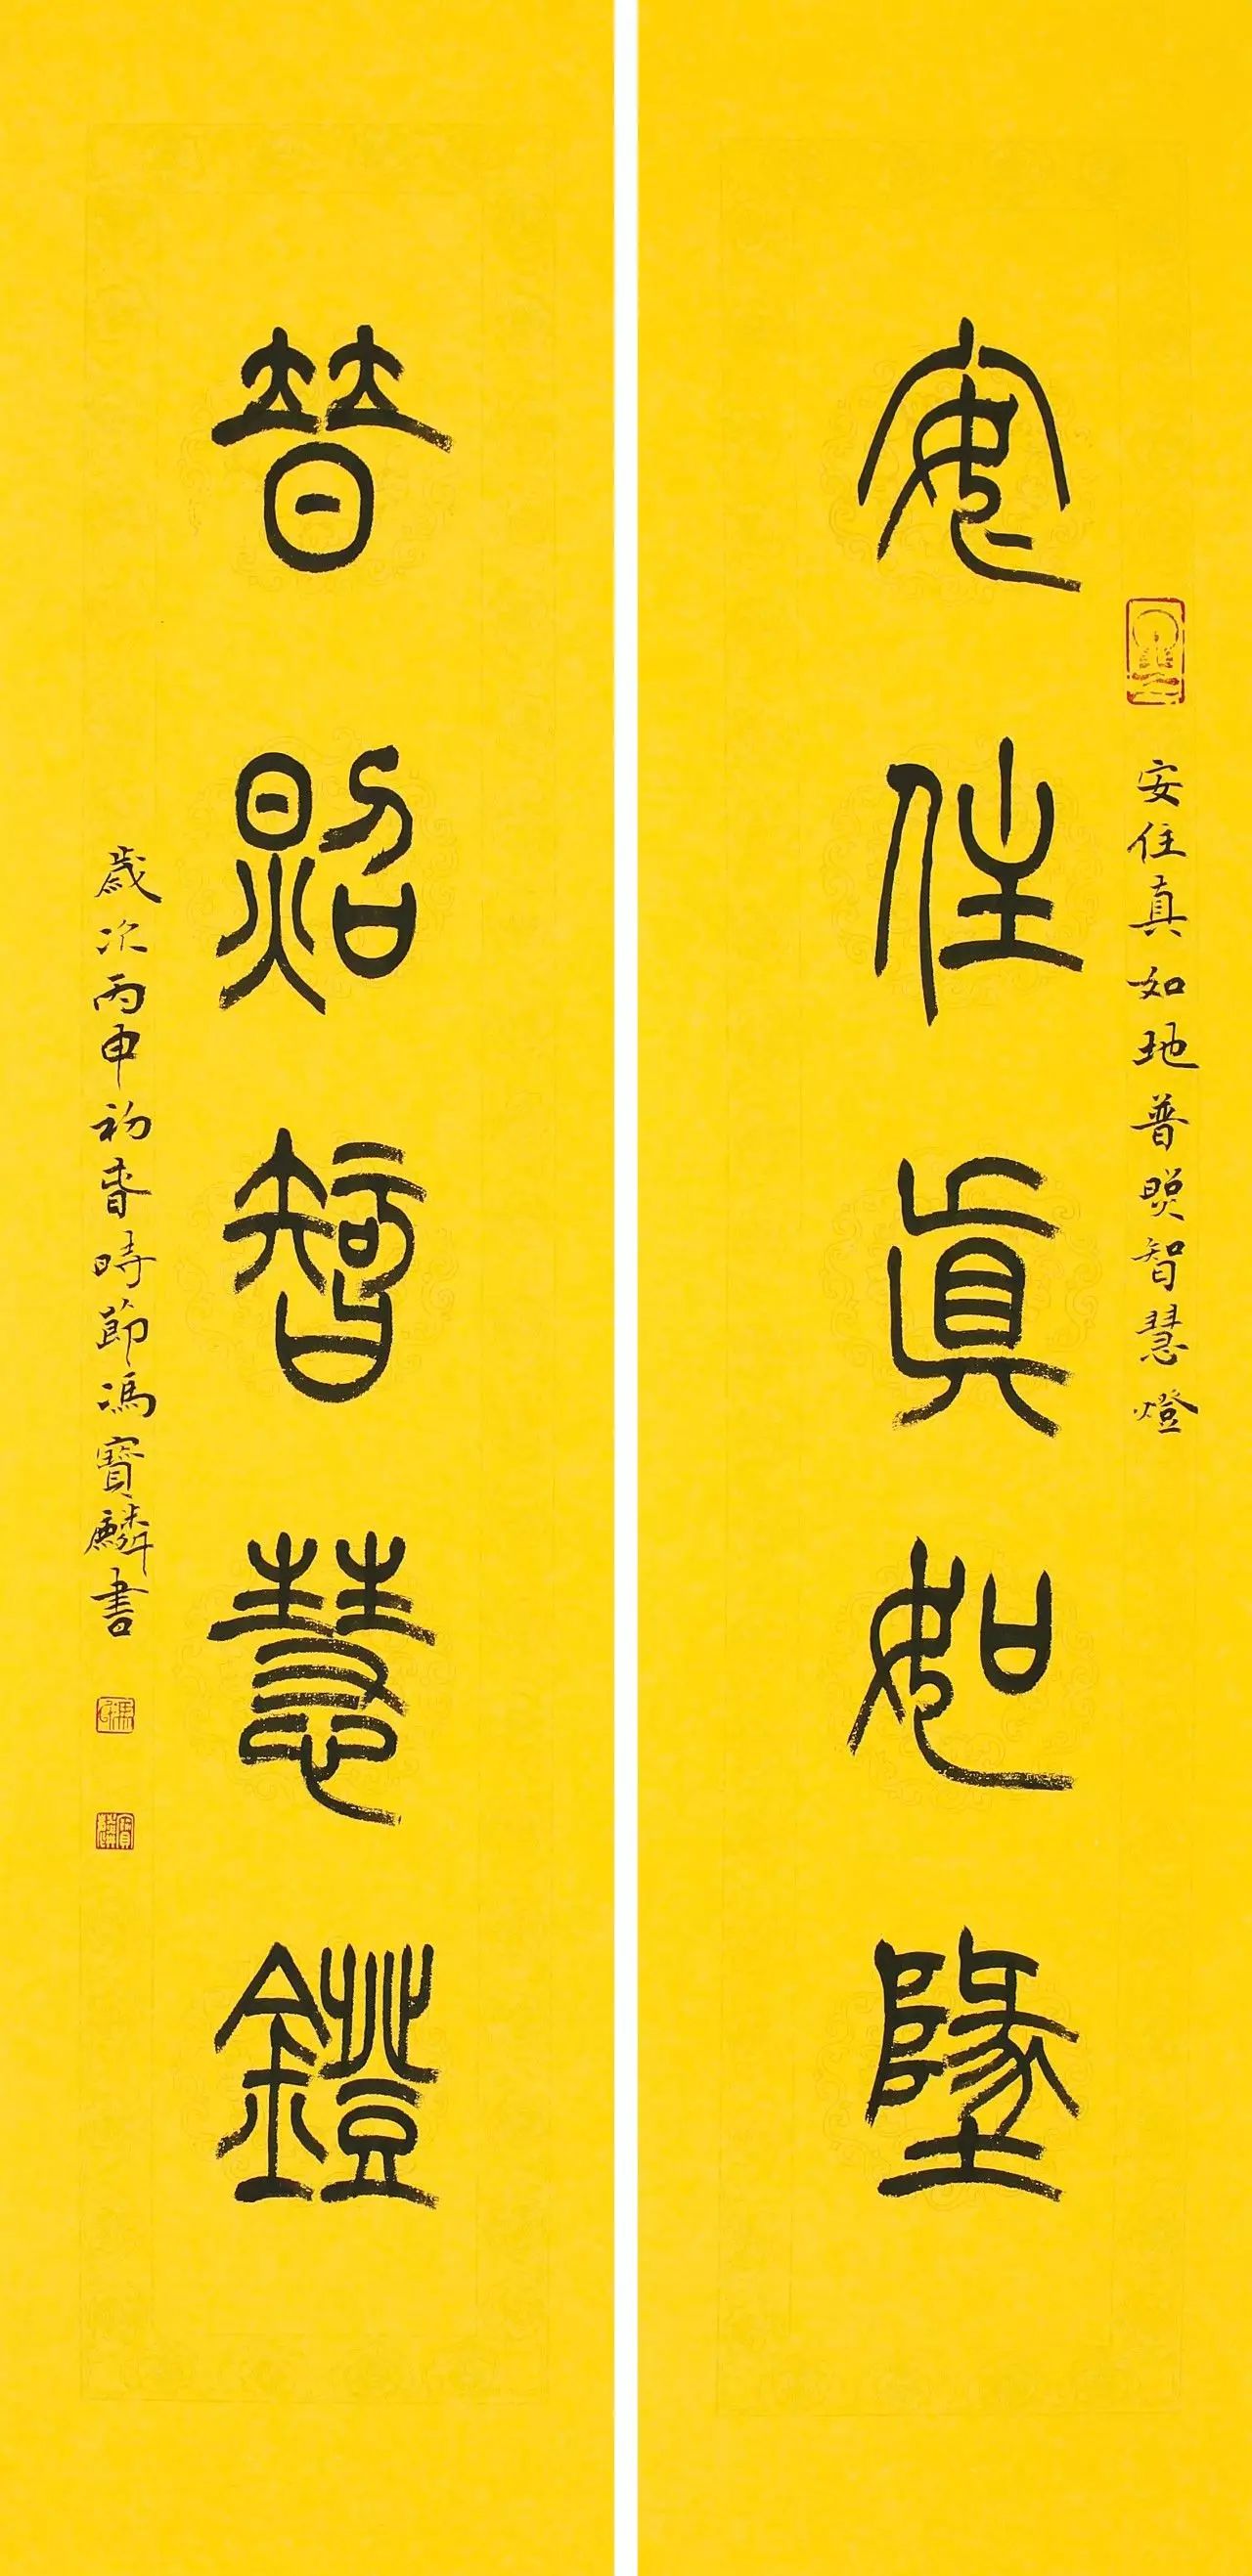 安住真如地普照智慧燈
安住眞如墬
普照智慧鐙
歲次丙申初春時節馮寶麟書